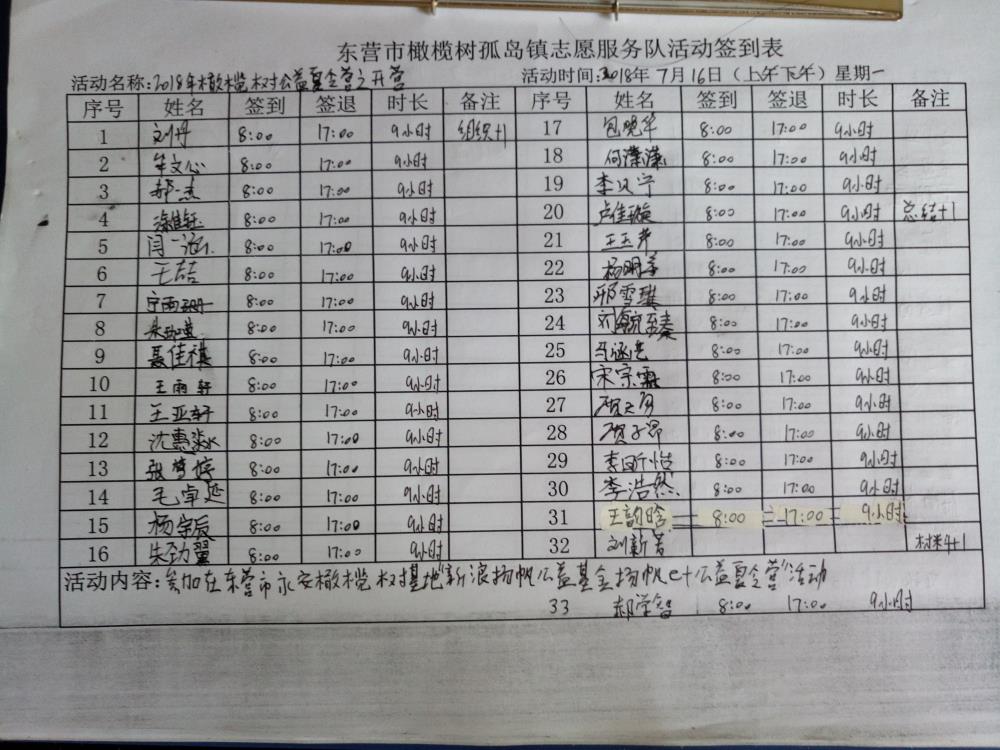 东营市橄榄树孤岛镇志愿服务队活动签到表
活动名称:2018年橄榄树公益夏令营之开营 活动时间:2018年7月16日(上午下午)星期一
序号 姓名 签到 签退 时长 备注 序号 姓名 签到 签退 时长 备注
1 刘丹 8:00 17:00 9小时 组织+1 17 包晓华 8:00 17:00 9小时
2 牟文心 8:00 17:00 9小时 18 何潇潇 8:00 17:00 9小时
3 郝杰 8:00 17:00 9小时 19 李汶宁 8:00 17:00 9小时
4 8:00 17:00 9小时 20 卢佳璇 8:00 17:00 9小时 总结+1
5 闫一 8:00 17:00 9小时 21 王玉 8:00 17:00 9小时
6 王喆 8:00 17:00 9小时 22 杨明 8:00 17:00 9小时
7 宁雨珊 8:00 17:00 9小时 23 邢雪琪 8:00 17:00 9小时
8 8:00 17:00 9小时 24 刘毓蓁 8:00 17:00 9小时
9 聂佳祺 8:00 17:00 9小时 25 马涵 8:00 17:00 9小时
10 王雨轩 8:00 17:00 9小时 26 宋宗霖 8:00 17:00 9小时
11 王亚轩 8:00 17:00 9小时 27 贺之 8:00 17:00 9小时
12 沈惠淼 8:00 17:00 9小时 28 贺子昂 8:00 17:00 9小时
13 张梦婷 8:00 17:00 9小时 29 李昕怡 8:00 17:00 9小时
14 毛卓延 8:00 17:00 9小时 30 李浩然 8:00 17:00 9小时
15 杨宇辰 8:00 17:00 9小时 31 王韵晗 8:00 17:00 9小时
16 朱劲翼 8:00 17:00 9小时 32 刘新 材料+1
活动内容:参加在东营市永安橄榄树基地"新浪扬帆公益基金扬帆e+公益夏令营"活动
33 郝学智 8:00 17:00 9小时